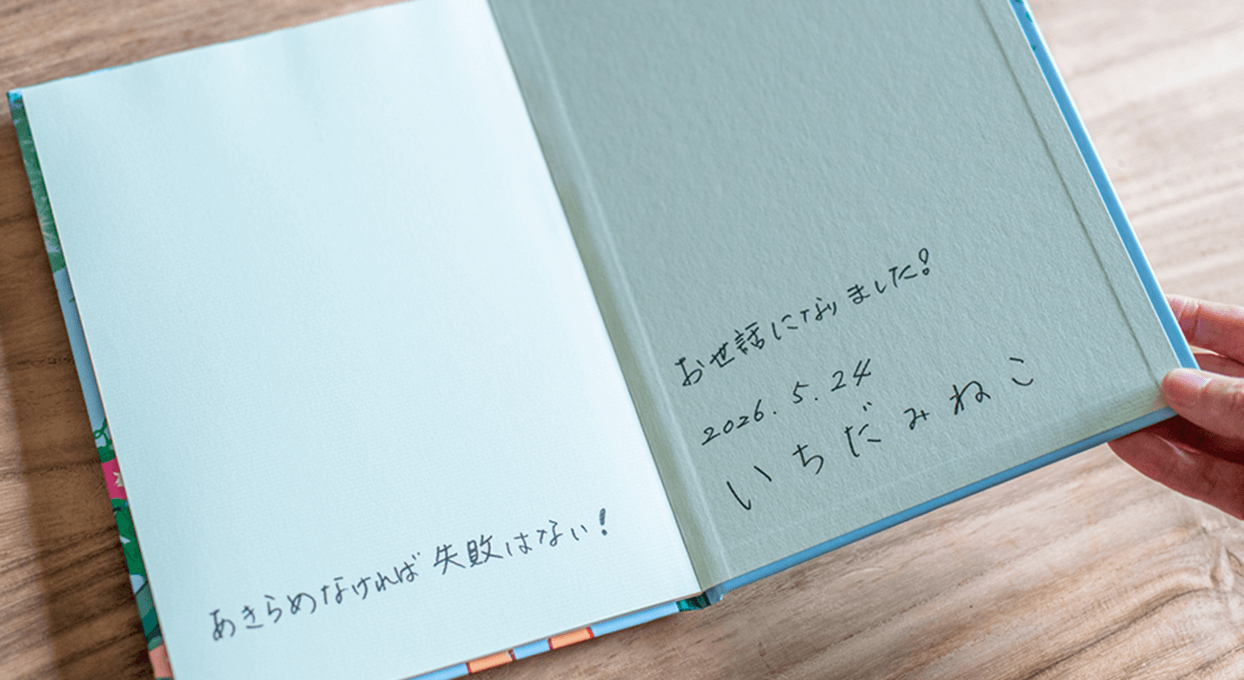 あきらめなければ失敗はない!
お世話になりました!
2026.5.24
いちだみねこ